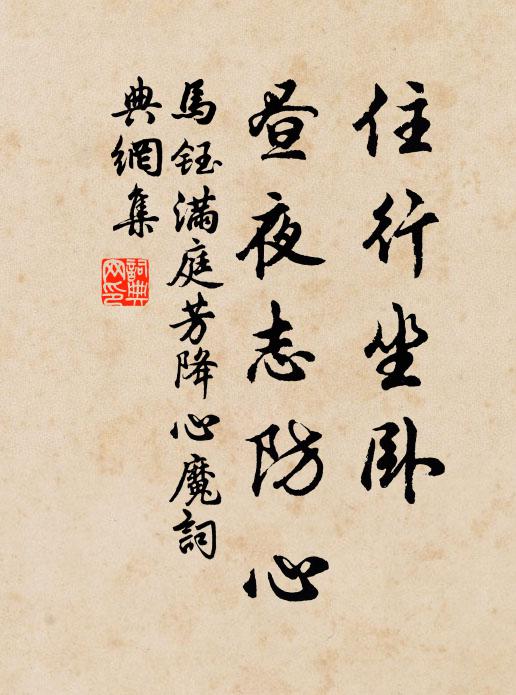 住行坐卧
昼夜志防心
馬鈺滿庭芳降心魔詞
典網集
詞典网印